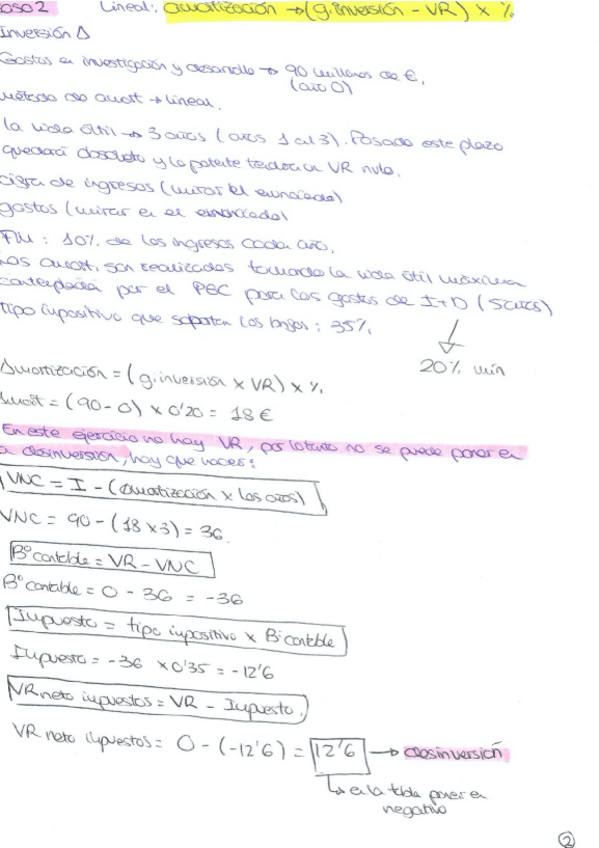 caso 2 Lineal: amortización → (g.inversión - VR) x %
Inversión A
Gastos en investigación y desarrollo → 90 millones de €.
(año 0)
método de amort → lineal.
la vida útil → 3 años (años 1 al 3). Pasado este plazo
quedará obsoleto y la patente tendrá un VR nulo.
cifra de ingresos (mirar el enunciado)
gastos (mirar en el enunciado)
FM : 10% de los ingresos cada año.
Las amort. son realizadas tomando la vida útil máxima
contemplada por el PGC para los gastos de I+D (5 años)
tipo impositivo que soportan los : 35%.
20% min
Amortización = (g.inversión x VR) x %
Amort = (90-0) x 0'20 = 18 €
En este ejercicio no hay VR, por lo tanto no se puede poner en
la desinversión, hay que hacer:
VNC = I - (amortización x los años)
VNC = 90 - (18 x 3) = 36.
Bº contable = VR - VNC
Bº contable = 0 - 36 = -36
Impuesto = tipo impositivo x Bº contable
Impuesto = -36 x 0'35 = -12'6
VR neto impuestos = VR - Impuesto.
VR neto impuestos = 0 - (-12'6) = 12'6 → desinversión
↳ en la tabla poner en
negativo
2